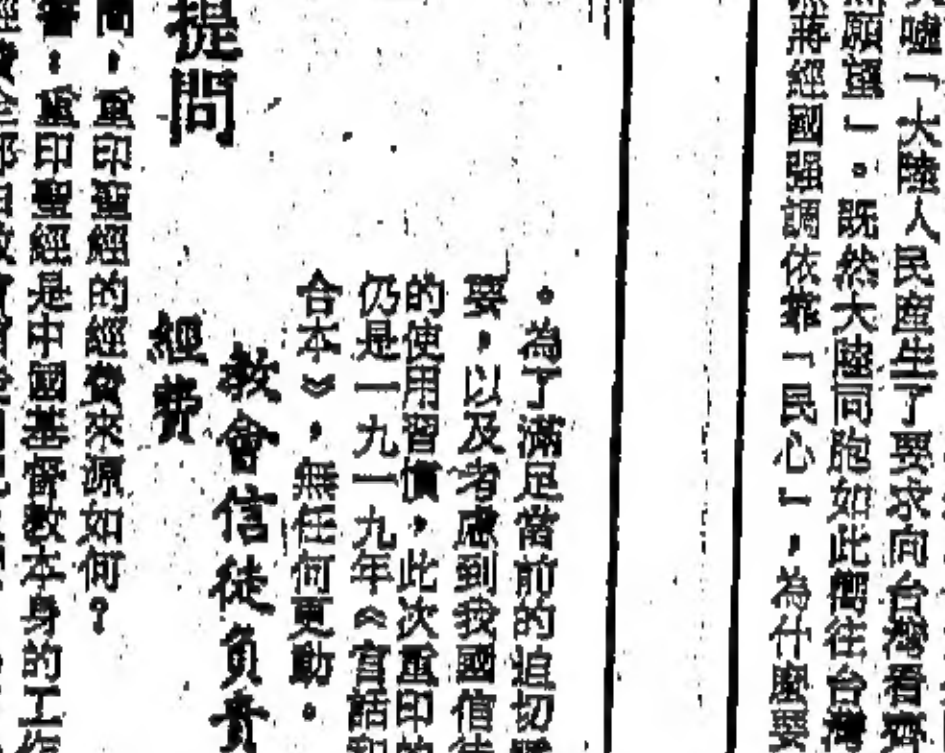 嘘「大陸人民產生了要求向台灣看齊
願望」。既然大陸同胞如此嚮往台灣
蔣經國强調依靠「民心」，為什麼要
。為了滿足當前的迫切
要，以及考慮到我國信徒
的使用習慣，此次重印的
仍是一九一九年《官話和
合本》，無任何更動。
教會信徒負責
經費
提問
問，重印聖經的經費來源如何？
，重印聖經是中國基督教本身的工作